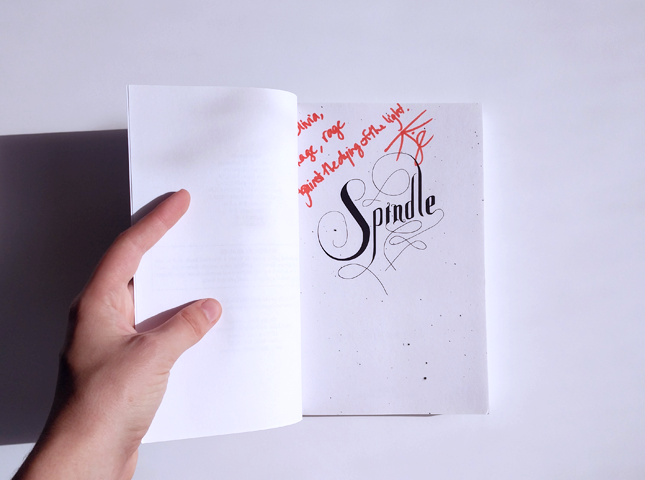 livia,
rage, rage
against the dying of the light.
Spindle